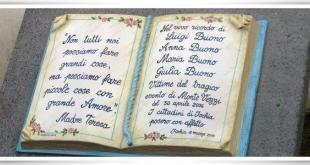 "Non tutti noi
possiamo fare
grandi cose,
ma possiamo fare
piccole cose con
grande Amore"
Madre Teresa
Nel vivo ricordo di
Luigi Buono
Anna Buono
Maria Buono
Giulia Buono
Vittime del tragico
evento di Monte Vezzi
del 30 aprile 2006
I cittadini di Ischia
posero con affetto